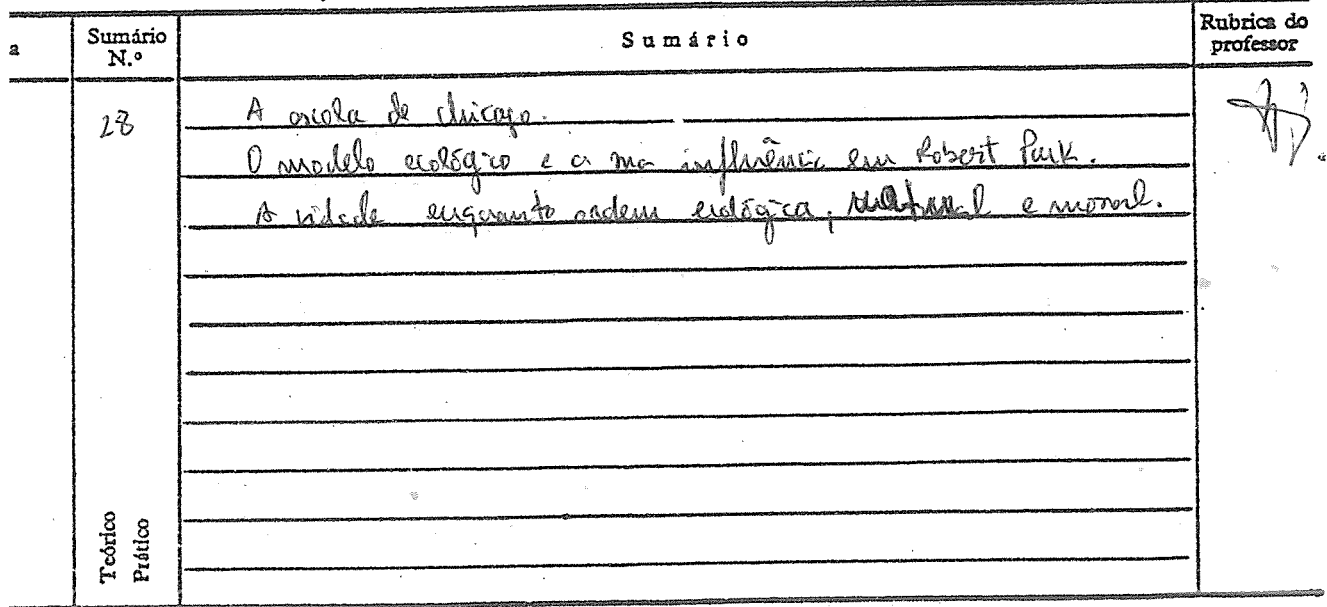 a
Sumário N.º
Sumário
Rubrica do professor
28
A escola de Chicago.
O modelo ecológico e a sua influência em Robert Park.
A cidade enquanto ordem ecológica, e moral.
Teórico
Prático